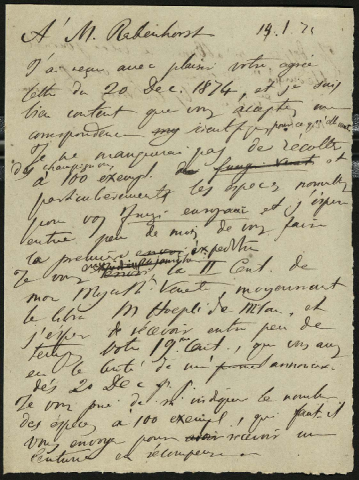 A M. Rabenhorst 14. 1. 75
J'ai reçu avec plaisir votre agrée
lettre du 20 Dec. 1874, et je suis
bien content que vous acceptez une
correspondence
Je ne manquerai pas de recolter
des champignons
à 100 exempl. de fungi et
particulierement les especes nouvelles
pour vos Fungi et j'espère
entre peu de mois de vous faire
la première envoi expedition
Je vous la II Cent. de
mon Myc. Venet., moyennant
le libr. M Hoepli de Milan, et
j'espère de recevoir entre peu de
temps votre 19me Cent., que vous avez
eu la bonté de m'
dès 20 Dec
Je vous prie de m'indiquer le nombre
des espèces à 100 exempl., que faut-il
vous envoyer pour recevoir une
centurie en récompense